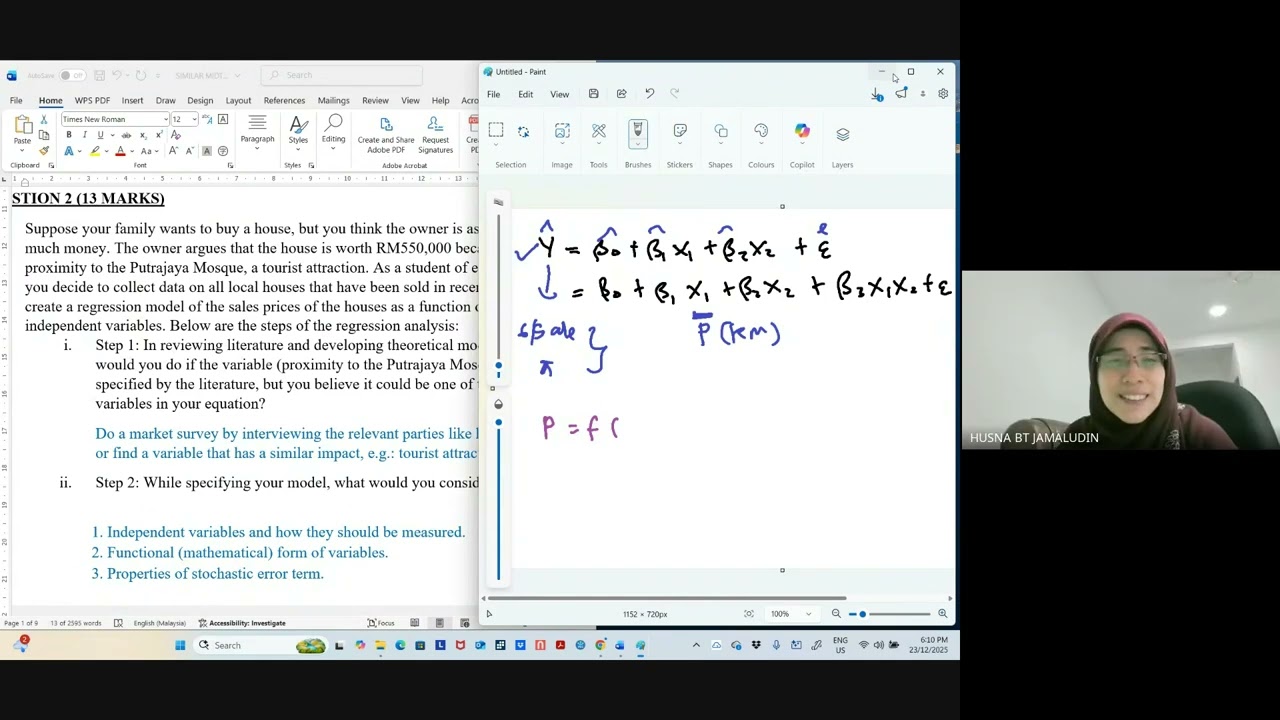 AutoSave Off
SIMILAR MIDT...
Search
File Home WPS PDF Insert Draw Design Layout References Mailings Review View Help Acro
Times New Roman 12
Paste
Clipboard
Font
Paragraph
Styles
Styles
Editing
Create and Share Adobe PDF
Request Signatures
Adobe Acrobat
STION 2 (13 MARKS)
Suppose your family wants to buy a house, but you think the owner is as
much money. The owner argues that the house is worth RM550,000 beca
proximity to the Putrajaya Mosque, a tourist attraction. As a student of e
you decide to collect data on all local houses that have been sold in recen
create a regression model of the sales prices of the houses as a function o
independent variables. Below are the steps of the regression analysis:
i. Step 1: In reviewing literature and developing theoretical mo
would you do if the variable (proximity to the Putrajaya Mos
specified by the literature, but you believe it could be one of
variables in your equation?
Do a market survey by interviewing the relevant parties like
or find a variable that has a similar impact, e.g.: tourist attrac
ii. Step 2: While specifying your model, what would you consid
1. Independent variables and how they should be measured.
2. Functional (mathematical) form of variables.
3. Properties of stochastic error term.
Page 1 of 9 13 of 2595 words English (Malaysia) Accessibility: Investigate Focus
Untitled - Paint
File Edit View
Selection Image Tools Brushes Stickers Shapes Colours Copilot Layers
Ŷ = β̂0 + β̂1 X1 + β̂2 X2 + ε
e
= β0 + β1 X1 + β2 X2 + β3 X1 X2 + ε
P (km)
π
P = f (
1152 × 720px 100%
HUSNA BT JAMALUDIN
2
Search
ENG
US
6:10 PM
23/12/2025